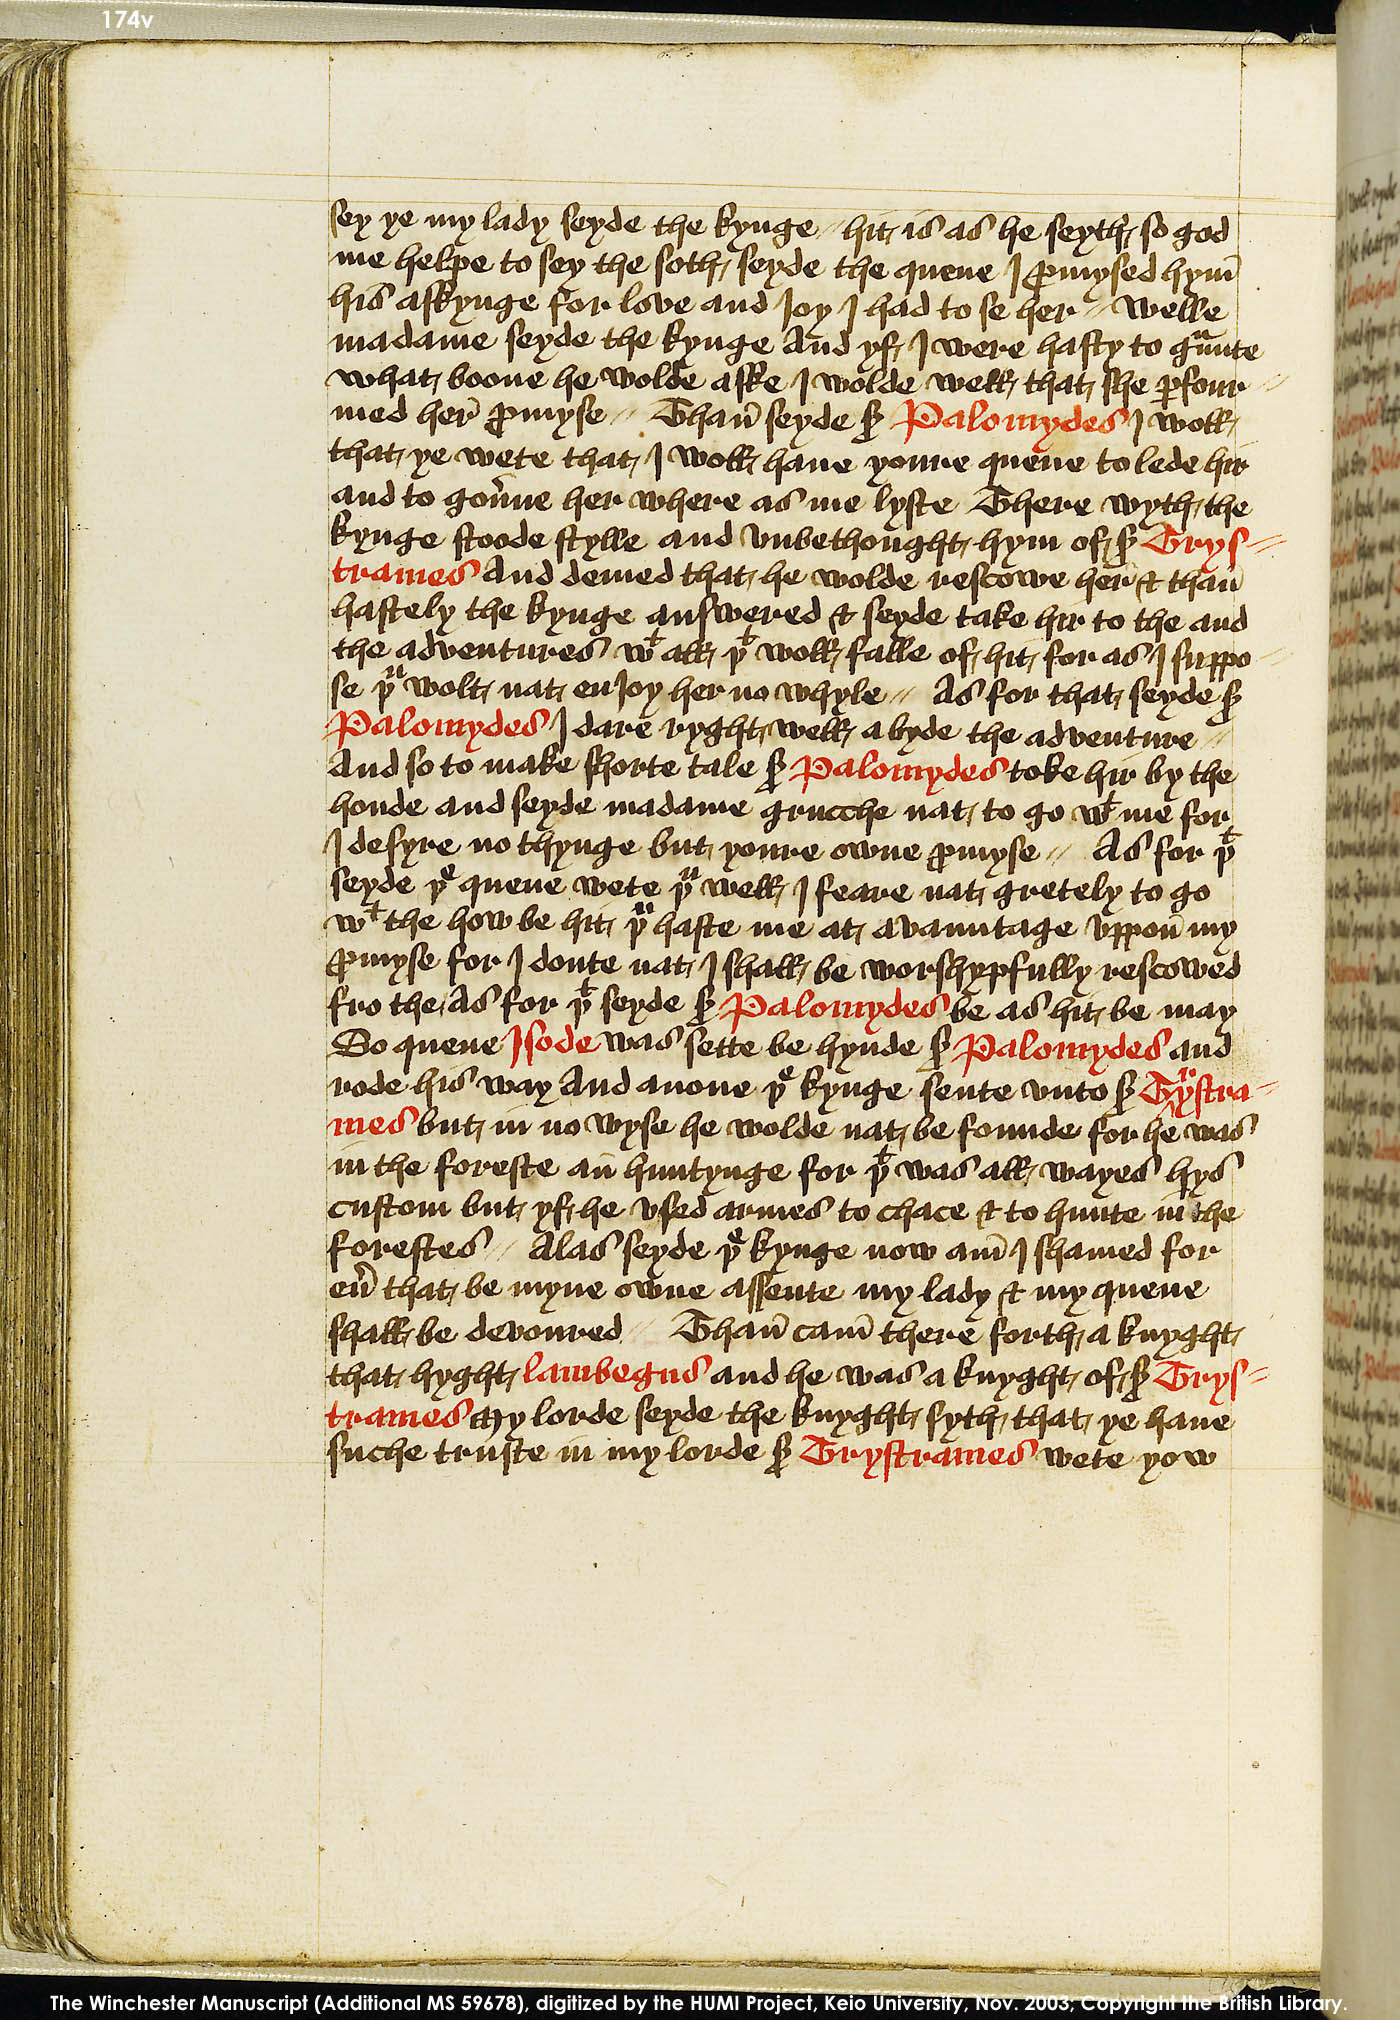 174v
sey ye my lady seyde the kynge // hit is as he seyth so god
me helpe to sey the soth seyde the quene I ꝓmysed hym̄
his askynge for love and Ioy I had to se her // Welle
madame seyde the kynge And yf I were hasty to gᵃunte
what boone he wolde aske I wolde well that she ꝑfour //
med her̄ ꝓmyse // Than̄ seyde sʳ Palomydes I woll
that ye wete that I woll haue youre quene to lede hir
and to goūne her where as me lyste There wyth the
kynge stoode stylle and vnbethought hym of sʳ Trys //
trames And demed that he wolde rescowe her̄ & than̄
hastely the kynge answered & seyde take hir to the and
the adventures wᵗ all þᵗ woll falle of hit for as I suppo //
se þᵘ wolt nat enIoy her no whyle // As for that seyde sʳ
Palomydes I dare ryght well a byde the adventure //
And so to make shorte tale sʳ Palomydes toke hir by the
honde and seyde madame grucche nat to go wᵗ me for
I desyre no thynge but youre owne ꝓmyse // As for þᵗ
seyde þᵉ quene wete þᵘ well I feare nat gretely to go
wᵗ the how be hit þᵘ haste me at avauntage vppon̄ my
ꝓmyse for I doute nat I shall be worshypfully rescowed
fro the As for þᵗ seyde sʳ Palomydes be as hit be may
So quene Isode was sette be hynde sʳ Palomydes and
rode his way And anone þᵉ kynge sente vnto sʳ Tʳystra //
mes but in no wyse he wolde nat be founde for he was
in the foreste an̄ huntynge for þᵗ was all wayes hys
custom but yf he vsed armes to chace & to hunte in̄ the
forestes // Alas seyde þᵉ kynge now am̄ I shamed for
eū that be myne owne assente my lady & my quene
shall be devoured // Than̄ cam̄ there forth a knyght
that hyght lambegus and he was a knyght of sʳ Trys //
trames My lorde seyde the knyght syth that ye haue
suche truste in my lorde sʳ Trystrames wete yow
The Winchester Manuscript (Additional MS 59678), digitized by the HUMI Project, Keio University, Nov. 2003; Copyright the British Library.